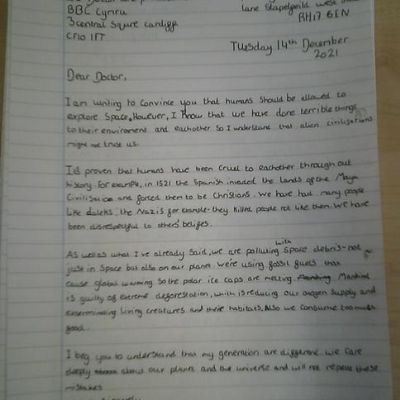 BBC Cymru
3 Central Squre Cardiff
CF10 1FT
lane Staplefield West
RH17 6EN
Tuesday 14th December
2021
Dear Doctor,
I am writing to convince you that humans should be allowed to
explore space, However, I know that we have done terrible things
to their enviroment and eachother so I understand that alien civilisations
might not trust us.
It is proven that humans have been cruel to eachother through out
history. For example, in 1521 the Spanish invaded the lands of the Maya
Civilisation and forced them to be Christians. We have had many people
like daleks, the Nazis for example - they killed people not like them. We have
been disrespectful to others' beliefs.
As well as what I've already said, we are polluting with space debris - not
just in space but also on our planet. We're using fossil fuels that
cause global warming so the polar ice caps are melting. Mankind
is guilty of extreme deforestation, which is reducing our oxygen supply and
exterminating living creatures and habitats. Also we consume too much
food.
I beg you to understand that my generation are different. We care
deeply about our planet and the universe and will not repeat these
mistakes